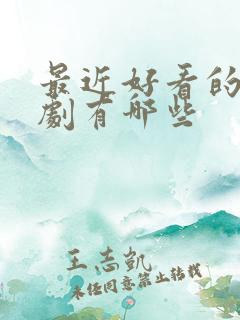 最近好看的
劇有哪些
王志凯
未经同意禁止转载